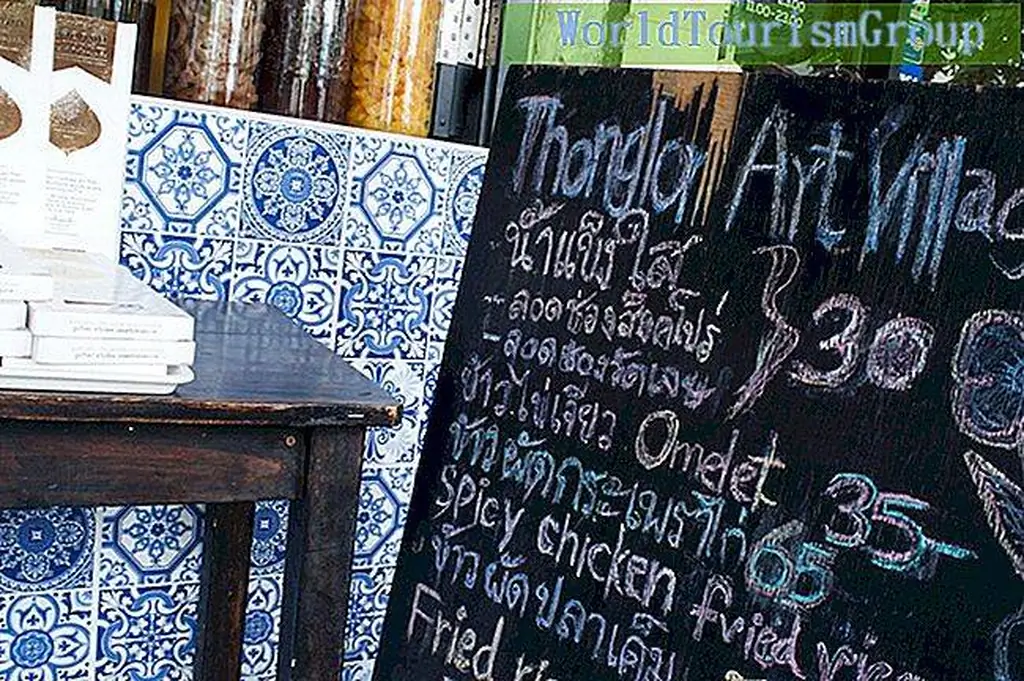 WorldTourismGroup
11:00-23:00
Thonglor Art Villag
น้ำแข็งใส
- ลอดช่องสิงคโปร์
30
- ลอดช่องวัดเจษ
ข้าวไข่เจียว Omelet 35-
ข้าวผัดกระเพราไก่ 65
Spicy chicken fried rice
ข้าวผัดปลาเค็ม
Fried ri